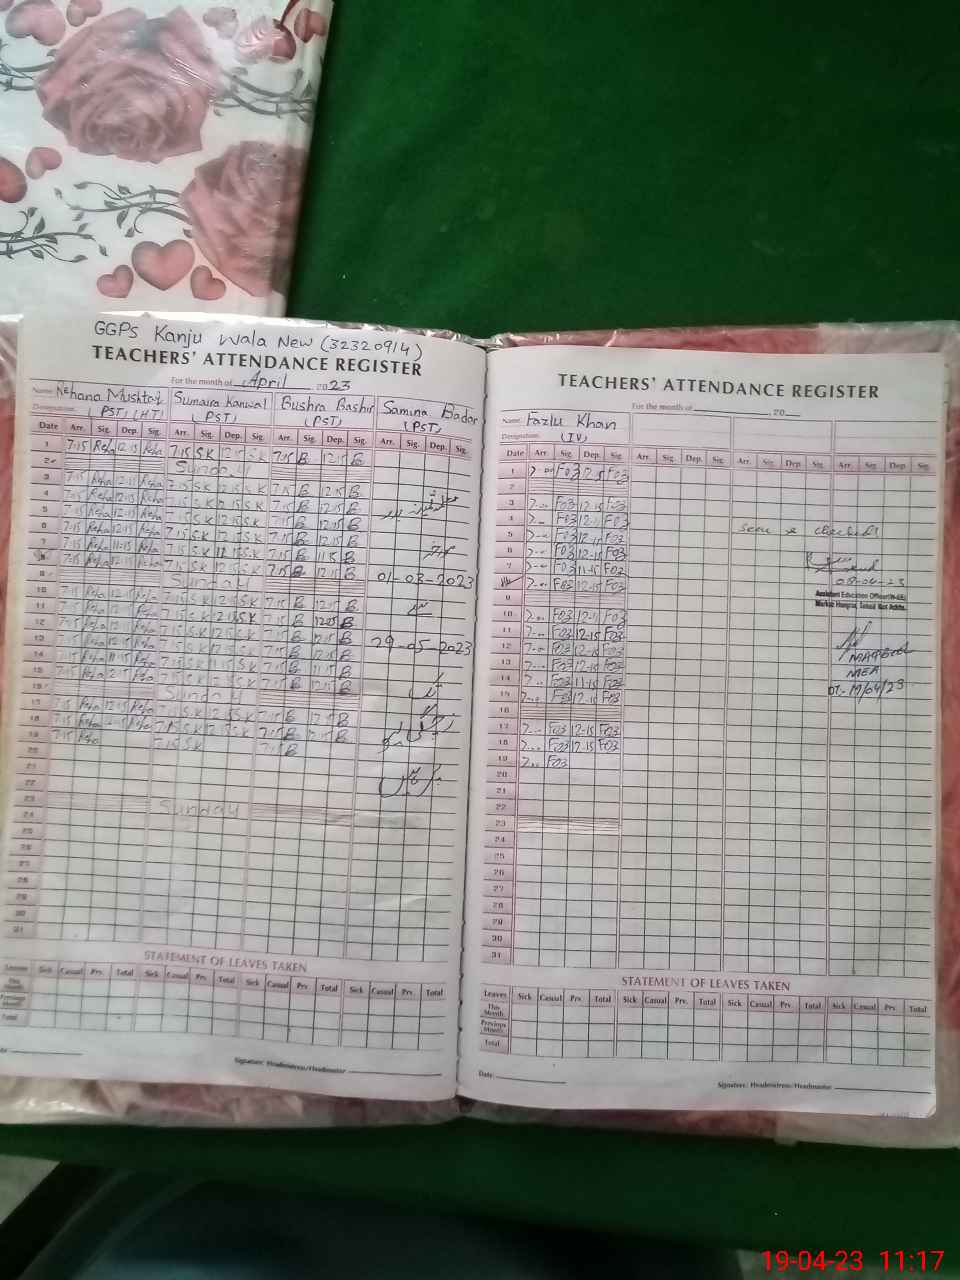 GGPS Kanju Wala New (32320914)
TEACHERS' ATTENDANCE REGISTER
For the month of April 2023
Name Rehana Mushtaq Sumaira Kanwal Bushra Bashir Samina Badar
Designation (PST) (H.T) (PST) (PST) (PST)
Date Arr. Sig. Dep. Sig. Arr. Sig. Dep. Sig. Arr. Sig. Dep. Sig. Arr. Sig. Dep. Sig.
1 7:15 Reha 12:15 Reha 7:15 SK 12:15 SK 7:15 B 12:15 B
2 Sunday
3 7:15 Reha 12:15 Reha 7:15 SK 12:15 SK 7:15 B 12:15 B
4 7:15 Reha 12:15 Reha 7:15 SK 12:15 SK 7:15 B 12:15 B
5 7:15 Reha 12:15 Reha 7:15 SK 12:15 SK 7:15 B 12:15 B
6 7:15 Reha 12:15 Reha 7:15 SK 12:15 SK 7:15 B 12:15 B
7 7:15 Reha 11:15 Reha 7:15 SK 7:15 B 11:15 B
7:15 Reha 12:15 Reha 7:15 SK 12:15 SK 7:15 B 12:15 B
01-03-2023
9 Sunday
10 7:15 Reha 12:15 Reha 7:15 SK 12:15 SK 7:15 B 12:15 B
11 7:15 Reha 12:15 Reha 7:15 SK 12:15 SK 7:15 B 12:15 B
12 7:15 Reha 12:15 Reha 7:15 SK 12:15 SK 7:15 B 12:15 B
29-05-2023
13 7:15 Reha 12:15 Reha 7:15 SK 12:15 SK 7:15 B 12:15 B
14 7:15 Reha 11:15 Reha 7:15 SK 11:15 SK 7:15 B 11:15 B
15 7:15 Reha 12:15 Reha 7:15 SK 12:15 SK 7:15 B 12:15 B
16 Sunday
17 7:15 Reha 12:15 Reha 7:15 SK 12:15 SK 7:15 B 12:15 B
18 7:15 Reha 12:15 Reha 7:15 SK 12:15 SK 7:15 B 12:15 B
19 7:15 Reha 7:15 SK 7:15 B
20
21
22
23 Sunday
24
25
26
27
28
29
30
31
STATEMENT OF LEAVES TAKEN
Leaves Sick Casual Prv. Total Sick Casual Prv. Total Sick Casual Prv. Total
This Month
Previous Month
Total
Signature: Headmistress/Headmaster
TEACHERS' ATTENDANCE REGISTER
For the month of 20
Name Fazlu Khan
Designation (IV)
Date Arr. Sig. Dep. Sig. Arr. Sig. Dep. Sig. Arr. Sig. Dep. Sig. Arr. Sig. Dep. Sig.
1 7:00 F03 12:15 F03
2
3 7:00 F03 12:15 F03
4 7:00 F03 12:15 F03
5 7:00 F03 12:15 F03
seen & checked
6 7:00 F03 12:15 F03
7 7:00 F03 11:15 F03
7:00 F03 12:15 F03
08-04-23
9
Assistant Education Officer(W-EE)
Markaz
10 7:00 F03 12:15 F03
11 7:00 F03 12:15 F03
12 7:00 F03 12:15 F03
MEA
13 7:00 F03 12:15 F03
14 7:00 F03 11:15 F03
15 7:00 F03 12:15 F03
DT:-19/04/23
16
17 7:00 F03 12:15 F03
18 7:00 F03 12:15 F03
19 7:00 F03
20
21
22
23
24
25
26
27
28
29
30
31
STATEMENT OF LEAVES TAKEN
Leaves Sick Casual Prv. Total Sick Casual Prv. Total Sick Casual Prv. Total Sick Casual Prv. Total
This Month
Previous Month
Total
Date:
Signature: Headmistress/Headmaster
19-04-23 11:17